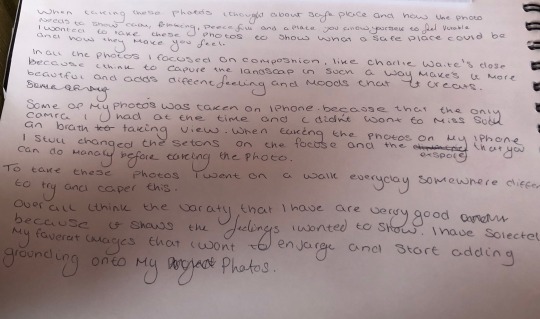 When taking these photos I thought about safe place and how the photo
needs to show calm, thinking, peaceful and a place you allow yourself to feel
I wanted to take these photos to show what a safe place could be
and how they make you feel.
In all the photos I focused on compersion, like Charlie Waite's dose
because I think to capure the landscap in such a way makes it more
beautiful and adds diffcent feeling and moods that it creats.
Some of my photos was taken on iPhone because that the only
camica I had at the time and I didnt want to miss such
an brath taking view. When taking the photos on my iPhone
I still changed the setons on the focuse and the that you
can do manaly before taking the photo.
To take these photos I went on a walk everyday somewhere differ
to try and caper this.
Over all I think the varaty that I have are very good
because it shows the feelings I wanted to show. I have selected
my faverat images that I wont to enlarge and start adding
grounding onto my photos.